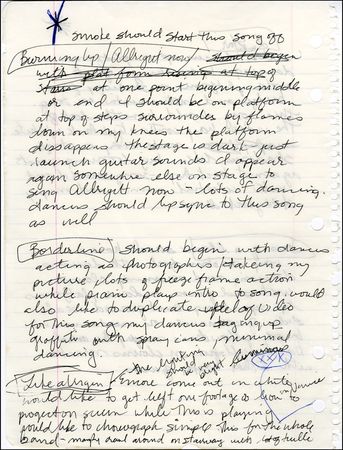 smoke should start this song off
Burning Up / Allright now should begin
with platform rising at top of
stairs at one point beginning middle
or end I should be on platform
at top of steps surrounded by flames
down on my knees the platform
dissappears the stage is dark just
launch guitar sounds I appear
again somewhere else on stage to
sing Allright now - lots of dancing.
dancers should lip sync to this song
as well
Borderline should begin with dancers
acting as photographers / taking my
picture, lots of freeze frame action
while piano plays intro to song. would
also like to duplicate of video
for this song my dancers
graffiti with spray cans, minimal
dancing.
the lighting
should be
light
XXX
Like a Virgin Emcee come out in white
would like to get left over footage in Venice
projection screen while this is playing
would like to choreograph simple this for the whole
band - maybe around on stairway with